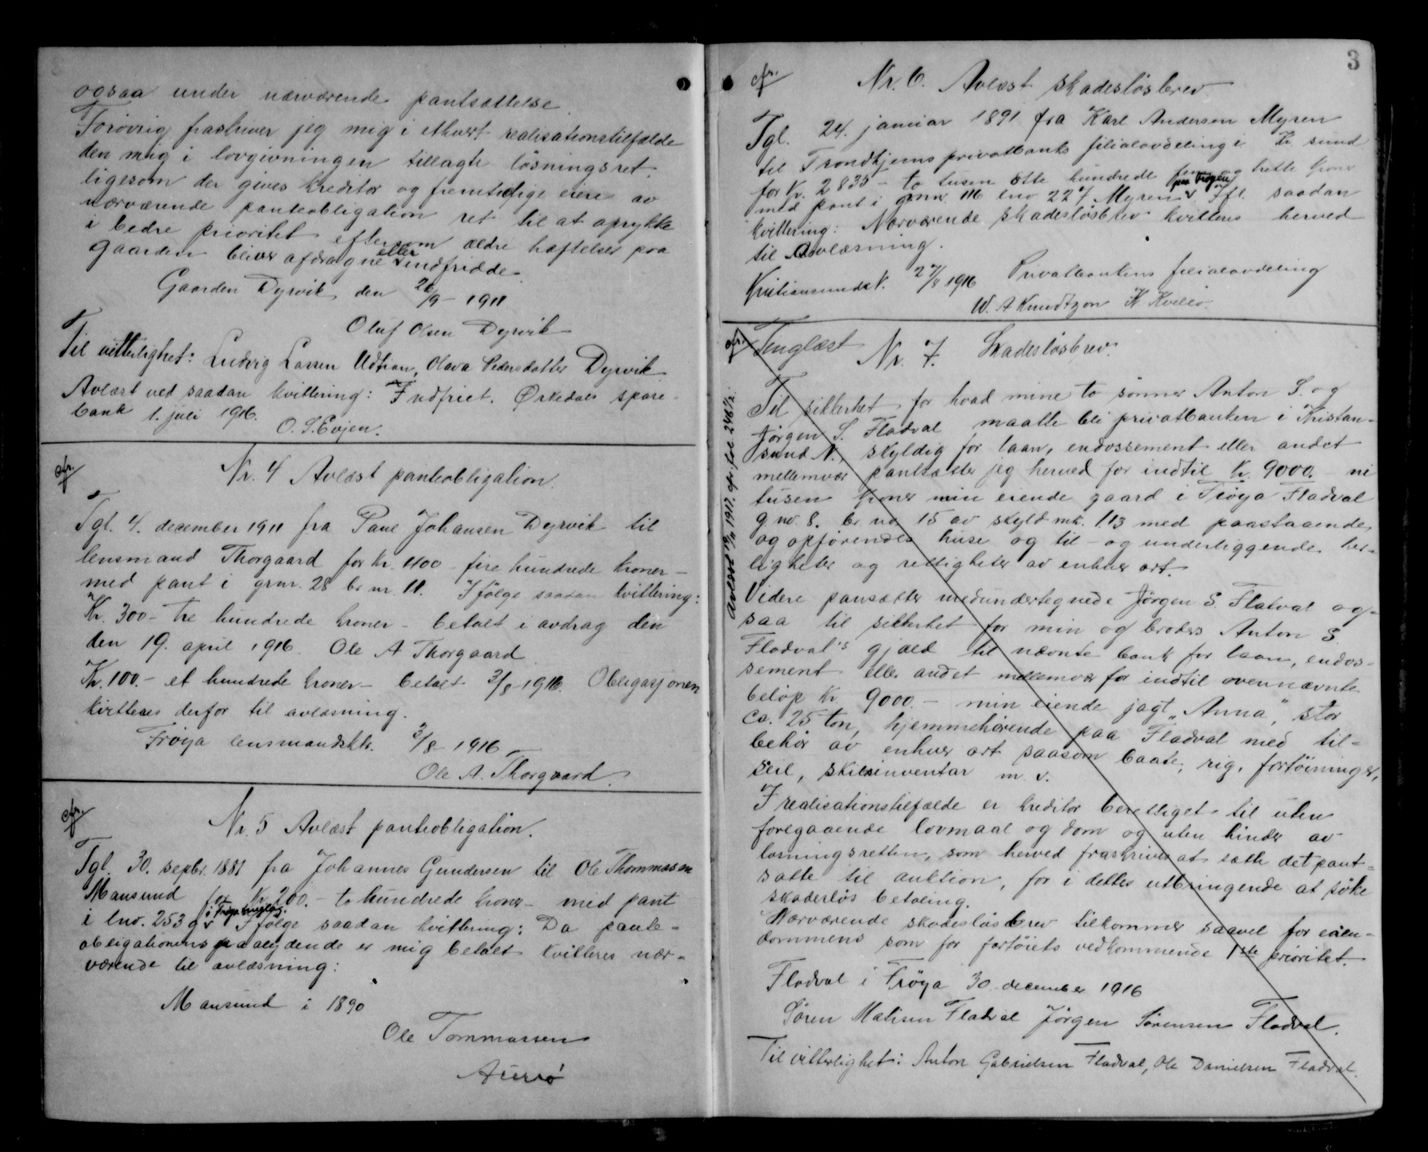 ogsaa under nærværende pantsættelse.
Forøvrig fraskriver jeg mig i ethvert realisationstilfælde
den mig i lovgivningen tillagte løsningsret,
ligesom der gives kreditor og fremtidige eiere av
nærværende panteobligation ret til at oprykke
i bedre prioritet eftersom ældre hæftelser paa
gaarden bliver afdragne eller indfriede.
Gaarden Dyrvik den 26/9 - 1911
Oluf Olsen Dyrvik
Til vitterlighet: Ludvig Larsen Udtian, Olava Pedersdatter Dyrvik
Avlæst ved saadan kvittering: Indfriet. Ørkedals spare-
bank 1. juli 1916.
O. S. Evjen.
cfr.
Nr. 4 Avlæst panteobligation.
Tgl. 4. december 1911 fra Paul Johansen Dyrvik til
lensmand Thorgaard for kr. 400 - fire hundrede kroner -
med pant i grnr. 28 br nr. 11. Ifølge saadan kvittering:
Kr. 300 - tre hundrede kroner - betalt i avdrag den
den 19. april 1916. Ole A Thorgaard
Kr. 100. - et hundrede kroner - betalt 3/8 1916. Obligasjonen
kvitteres derfor til avlæsning.
Frøya lensmandsktr. 3/8 1916
Ole A. Thorgaard.
cfr.
Nr. 5 Avlæst panteobligation.
Tgl. 30. septbr. 1881 fra Johannes Gundersen til Ole Thommassen
Mausund for Kr. 200. - to hundrede kroner - med pant
i lnr. 253 g i Frøya tinglag. Ifølge saadan kvittering: Da pante-
obligationens paalydende er mig betalt kvitteres nær-
værende til avlæsning:
Mausund i 1890
Ole Tommassen
3
cfr.
Nr. 6. Avlæst skadesløsbrev
Tgl. 24. januar 1891 fra Karl Andersen Myren
til Trondhjems privatbanks filialavdeling i Kr. sund
for kr. 2835 - to tusen otte hundrede fem og trette kroner
med pant i grnr. 116 lnr 227 Myren paa Frøyen. Ifl. saadan
kvittering: Nærværende skadesløsbrev kvitteres herved
til avlæsning.
Kristiansund N. 27/8 1916 Privatbankens filialavdeling
W. A Knudtzon K Kvello.
cfr.
Tinglæst Nr. 7. Skadesløsbrev.
Til sikkerhet for hvad mine to sønner Anton S. og
Jørgen S. Fladval maatte bli privatbanken i Kristian-
sund N., skyldig for laan, endossement eller andet
mellemvær pantsætter jeg herved for indtil kr. 9000. - ni
tusen kroner min eiende gaard i Frøya Fladval
g nr. 8. br no 15 av skyld mk. 1.13 med paastaaende
og opførendes huse og til- og underliggende her-
ligheter og rettigheter av enhver art.
Videre pansætter medundertegnede Jørgen S. Fladval og-
saa til sikkerhet for min og broders Anton S
Fladval's gjæld til nævnte bank for laan, endos-
sement eller andet mellemvær for indtil ovennævnte
beløp kr 9000. - min eiende jagt "Anna", stor
ca. 25 ton, hjemmehørende paa Fladval med til-
behør av enhver art saasom baate, rig, fortøininger,
seil, skibsinventar m. v.
I realisationstilfælde er kreditor berettiget til uten
foregaaende lovmaal og dom og uten hinder av
løsningsretten, som herved fraskrives at sætte det pant-
satte til auktion, for i dettes utbringende at søke
skadesløs betaling.
Nærværende skadesløsbrev tilkommer saavel for eien-
dommens som for fartøiets vedkommende 1ste prioritet.
Fladval i Frøya 30 december 1916
Søren Matisen Fladval Jørgen Sørensen Fladval.
Til vitterlighet: Anton Gabrielsen Fladval, Ole Danielsen Fladval.